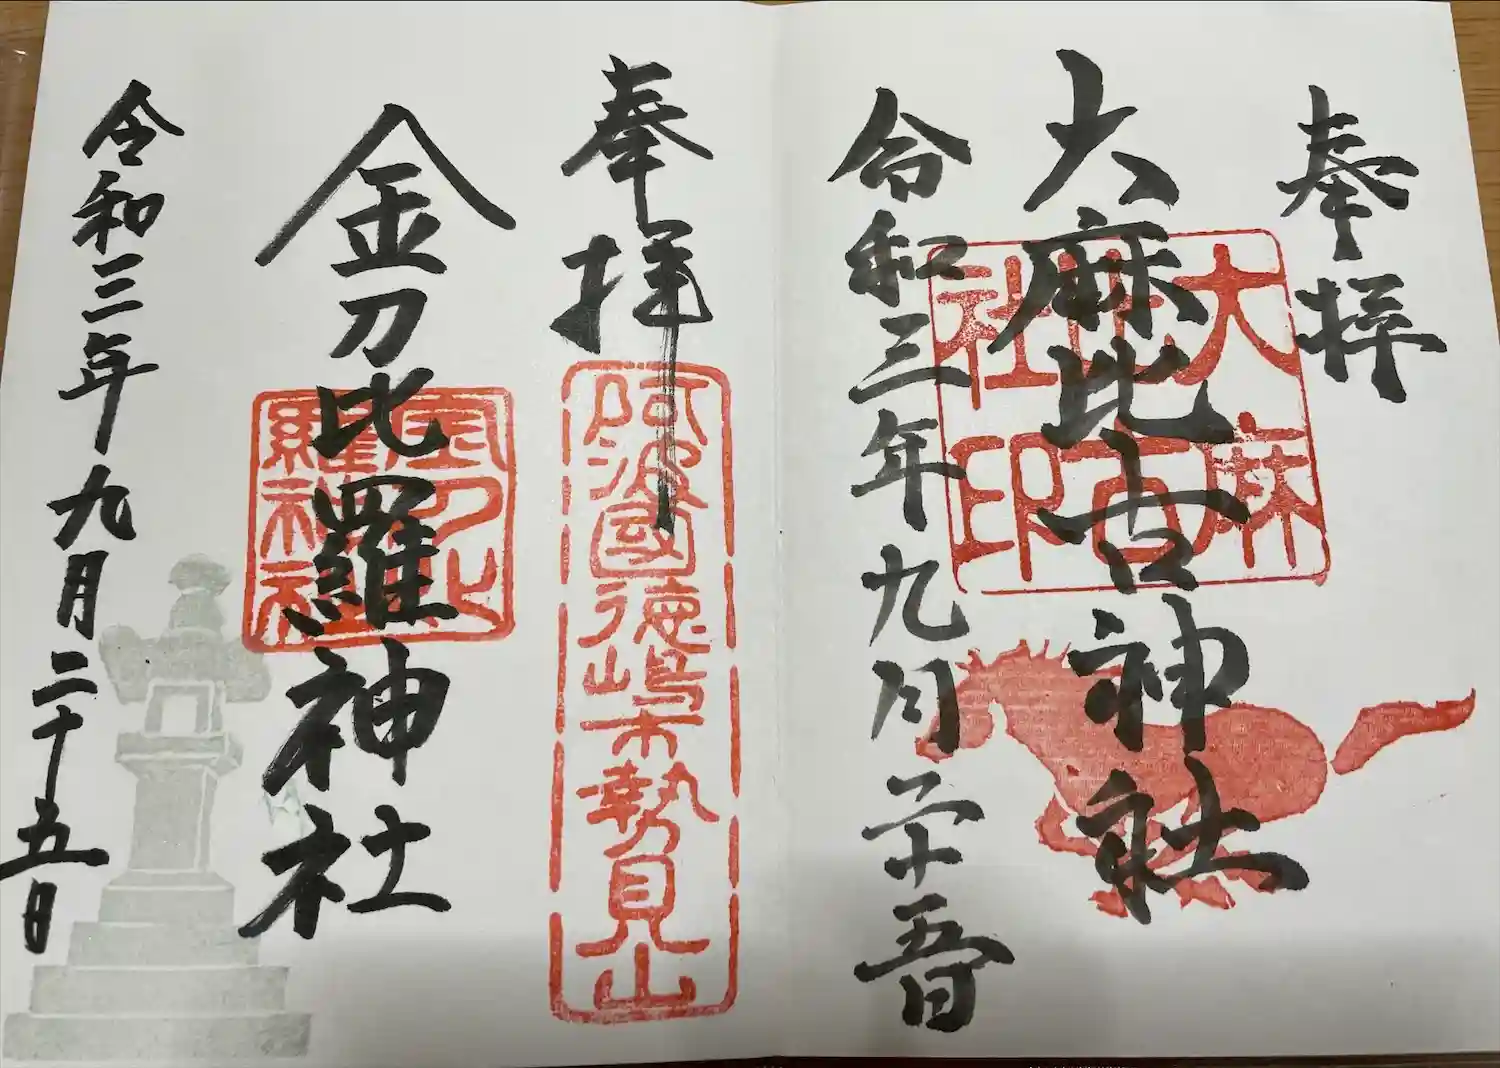 奉拝
大麻比古神社
大麻
比古
社印
令和三年九月二十五日
奉拝
阿波國徳嶋市勢見山
金刀比羅神社
金刀比
羅神社
令和三年九月二十五日